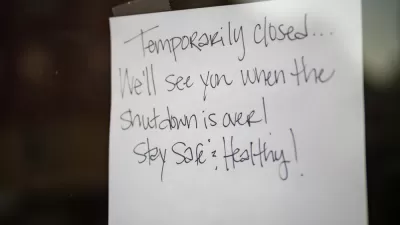 Temporarily closed...
We'll see you when the
shutdown is over!
Stay Safe & Healthy!